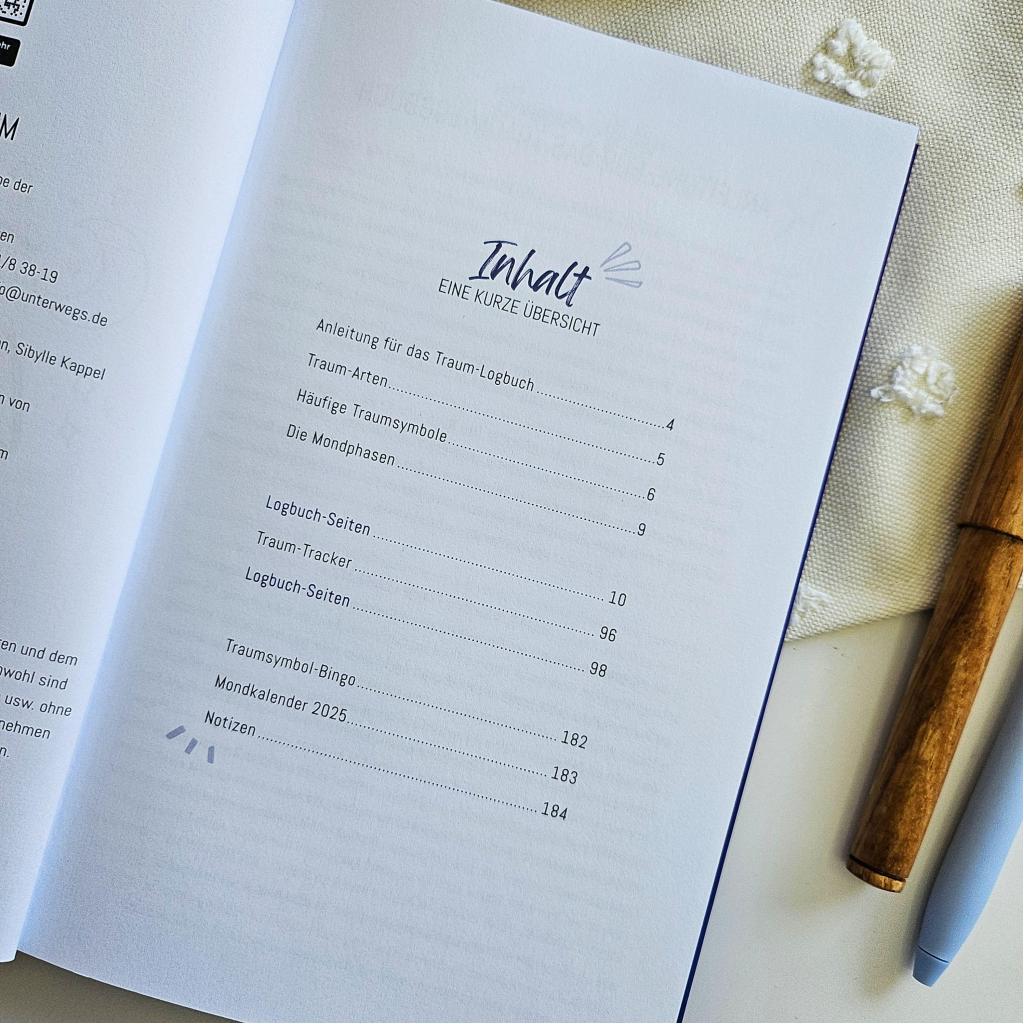 hr
M
e der
en
1/8 38-19
o@unterwegs.de
n, Sibylle Kappel
n von
m
en und dem
wohl sind
usw. ohne
nehmen
n.
Inhalt
EINE KURZE ÜBERSICHT
Anleitung für das Traum-Logbuch 4
Traum-Arten 5
Häufige Traumsymbole 6
Die Mondphasen 9
Logbuch-Seiten 10
Traum-Tracker 96
Logbuch-Seiten 98
Traumsymbol-Bingo 182
Mondkalender 2025 183
Notizen 184